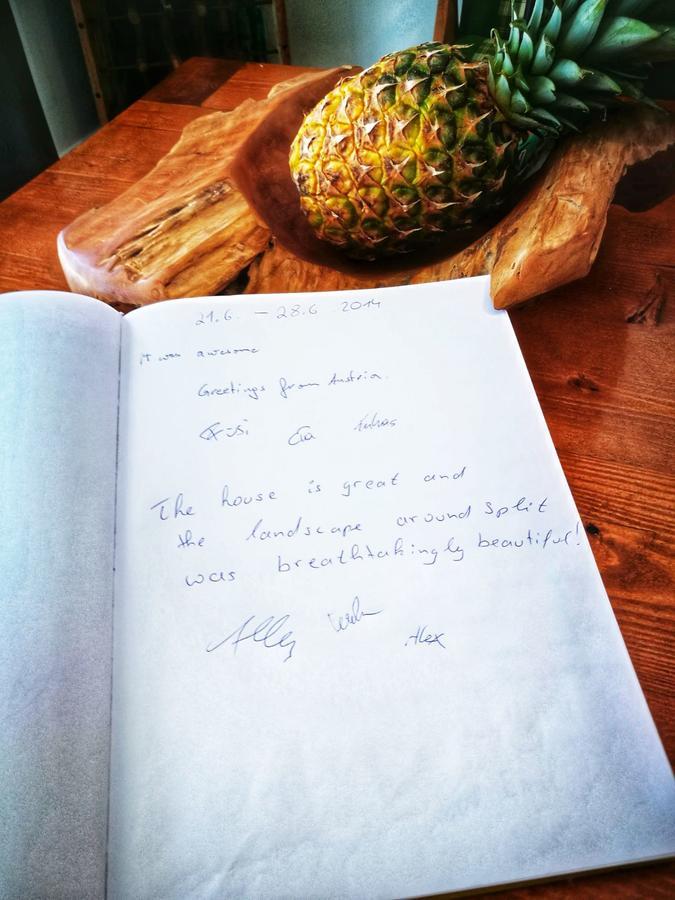 21.6. – 28.6 2014
It was awesome
Greetings from Austria.
Lukas
The house is great and
the landscape around split
was breathtakingly beautiful!
Alex